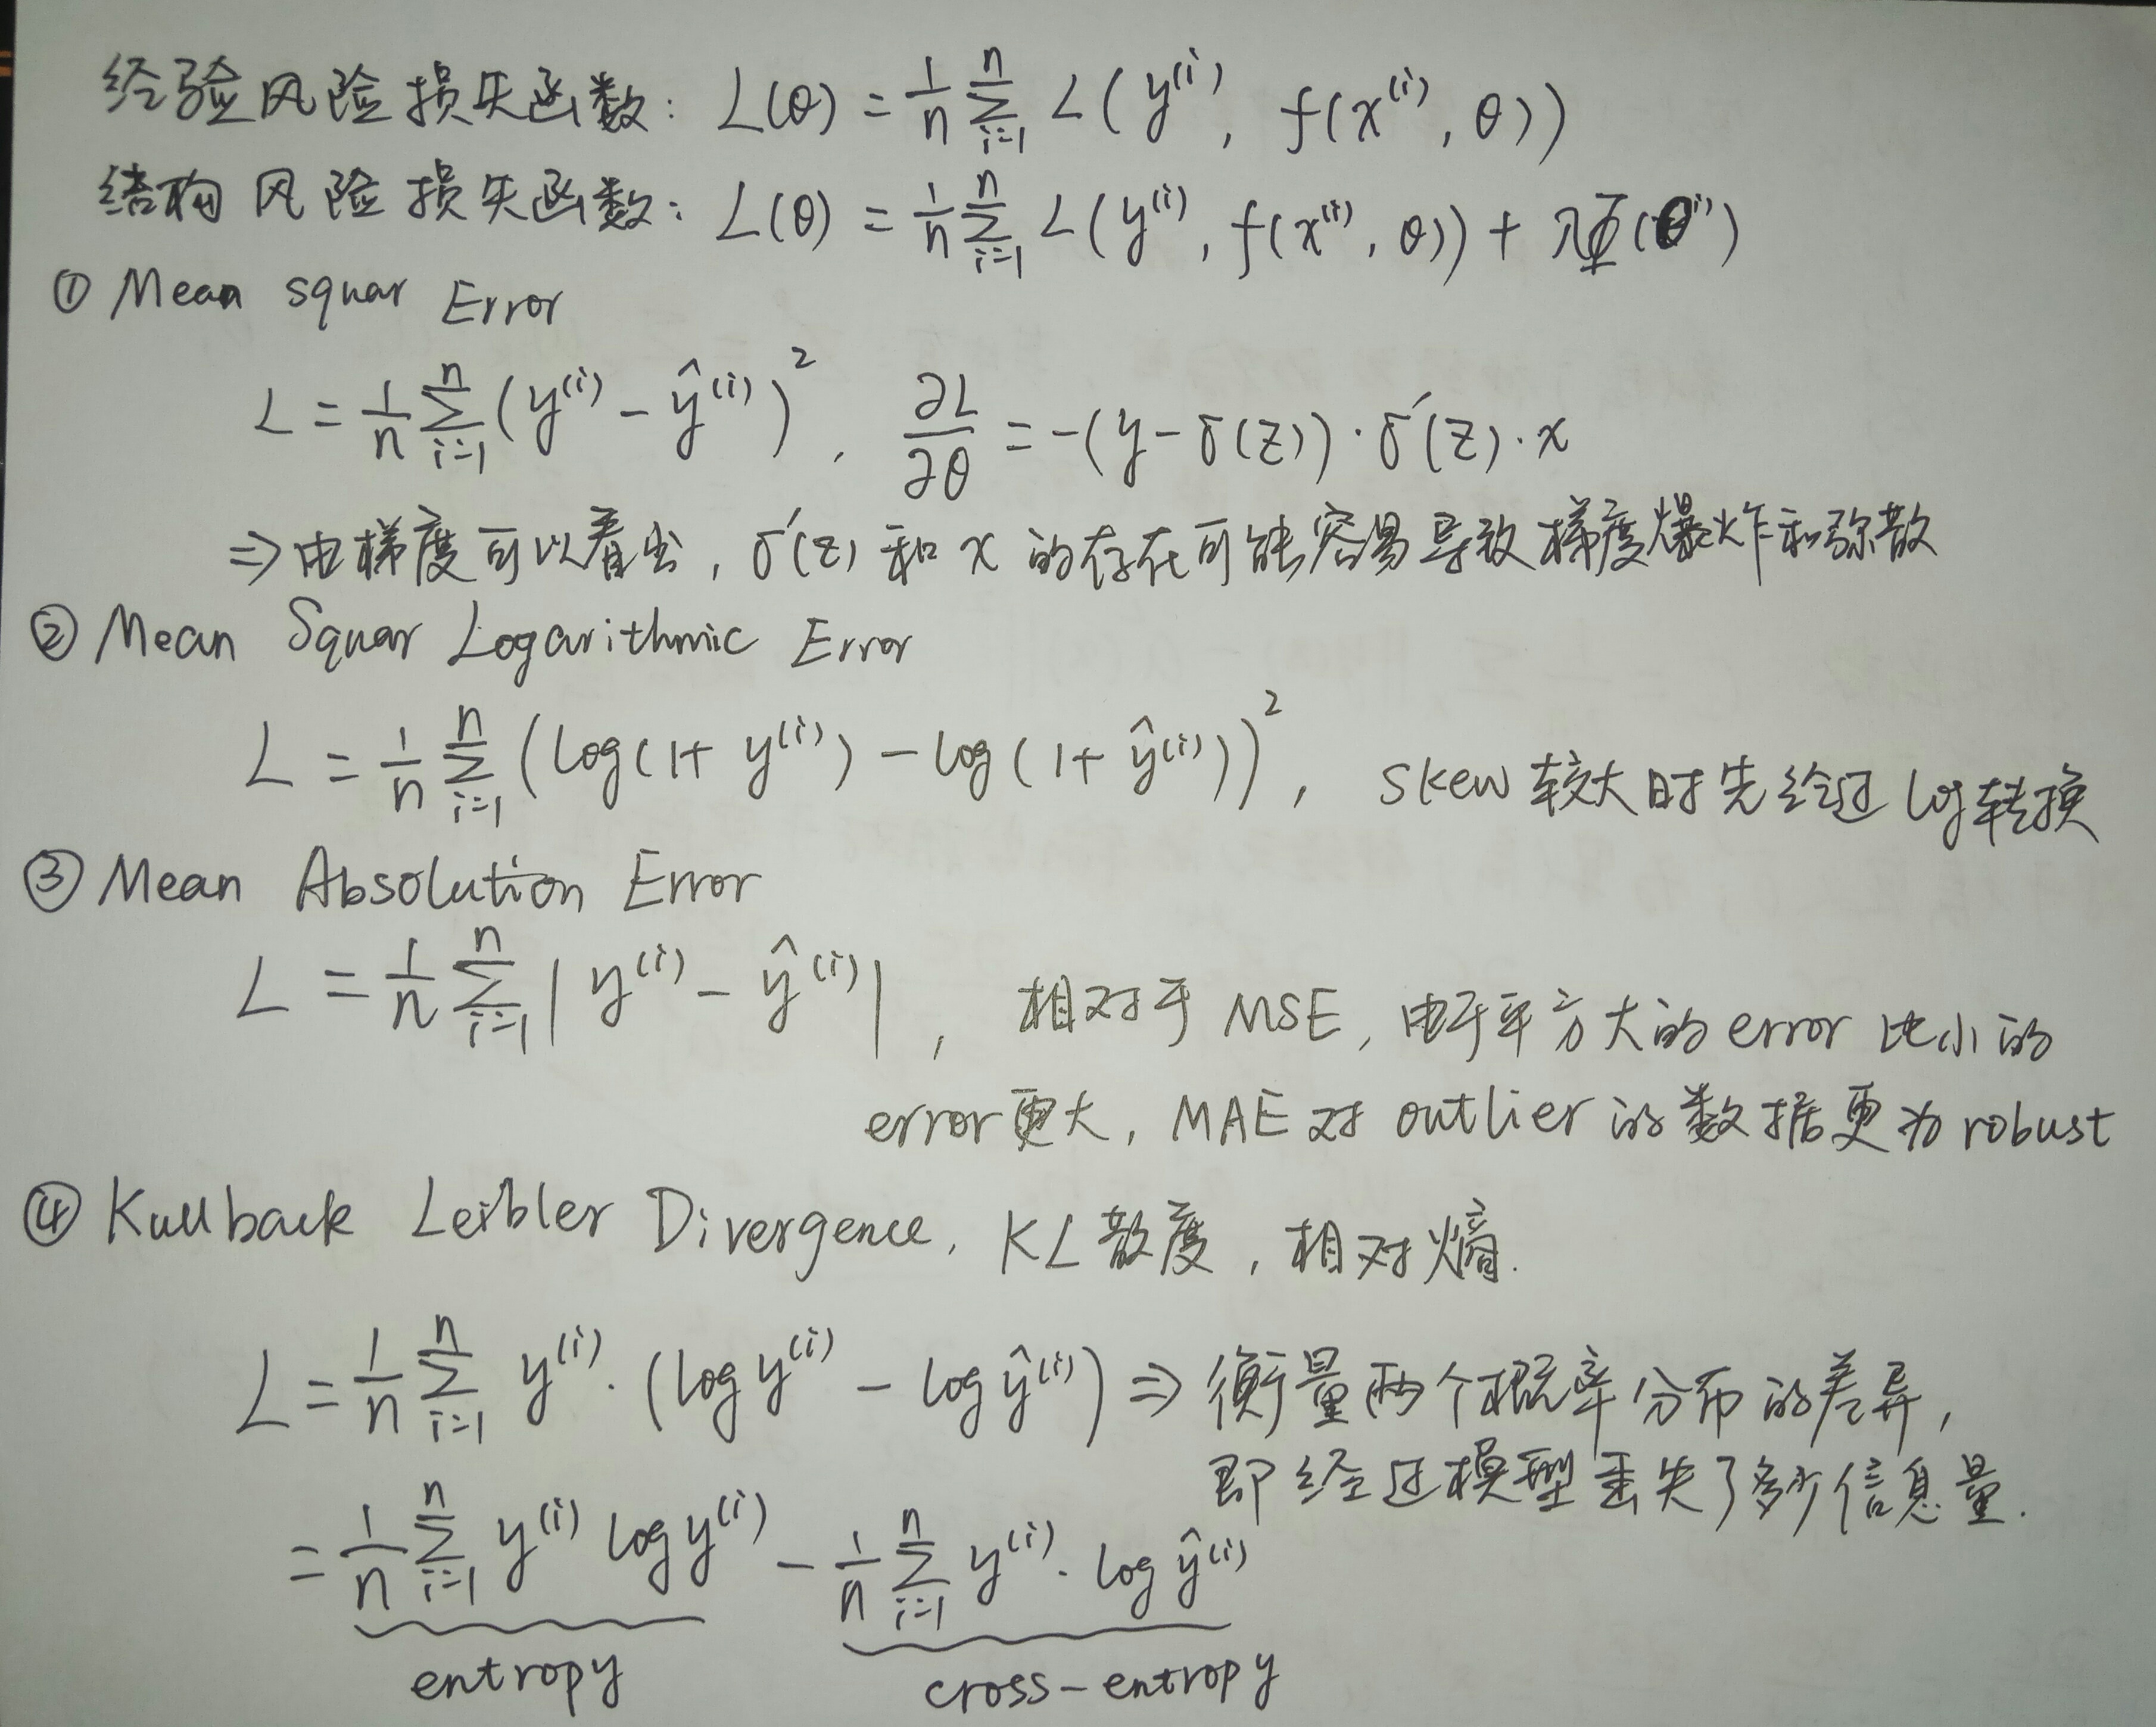 经验风险损失函数: L(θ) = 1/n Σ_{i=1}^{n} L(y^{(i)}, f(x^{(i)}, θ))
结构风险损失函数: L(θ) = 1/n Σ_{i=1}^{n} L(y^{(i)}, f(x^{(i)}, θ)) + λΦ(θ^{(i)})
① Mean squar Error
L = 1/n Σ_{i=1}^{n} (y^{(i)} - ŷ^{(i)})^2, ∂L/∂θ = -(y - δ(z)) · δ'(z) · x
⇒ 由梯度可以看出, δ'(z) 和 x 的存在可能容易导致梯度爆炸和弥散
② Mean Squar Logarithmic Error
L = 1/n Σ_{i=1}^{n} (log(1+ y^{(i)}) - log(1+ ŷ^{(i)}))^2, skew 较大时先经过 log转换
③ Mean Absolution Error
L = 1/n Σ_{i=1}^{n} | y^{(i)} - ŷ^{(i)} |, 相对于 MSE, 由于平方大的 error 比小的
error 更大, MAE 对 outlier 的数据更为 robust
④ Kullback Leibler Divergence, KL散度, 相对熵.
L = 1/n Σ_{i=1}^{n} y^{(i)} · (log y^{(i)} - log ŷ^{(i)}) ⇒ 衡量两个概率分布的差异,
即经过模型丢失了多少信息量.
= 1/n Σ_{i=1}^{n} y^{(i)} log y^{(i)} - 1/n Σ_{i=1}^{n} y^{(i)} · log ŷ^{(i)}
entropy cross-entropy